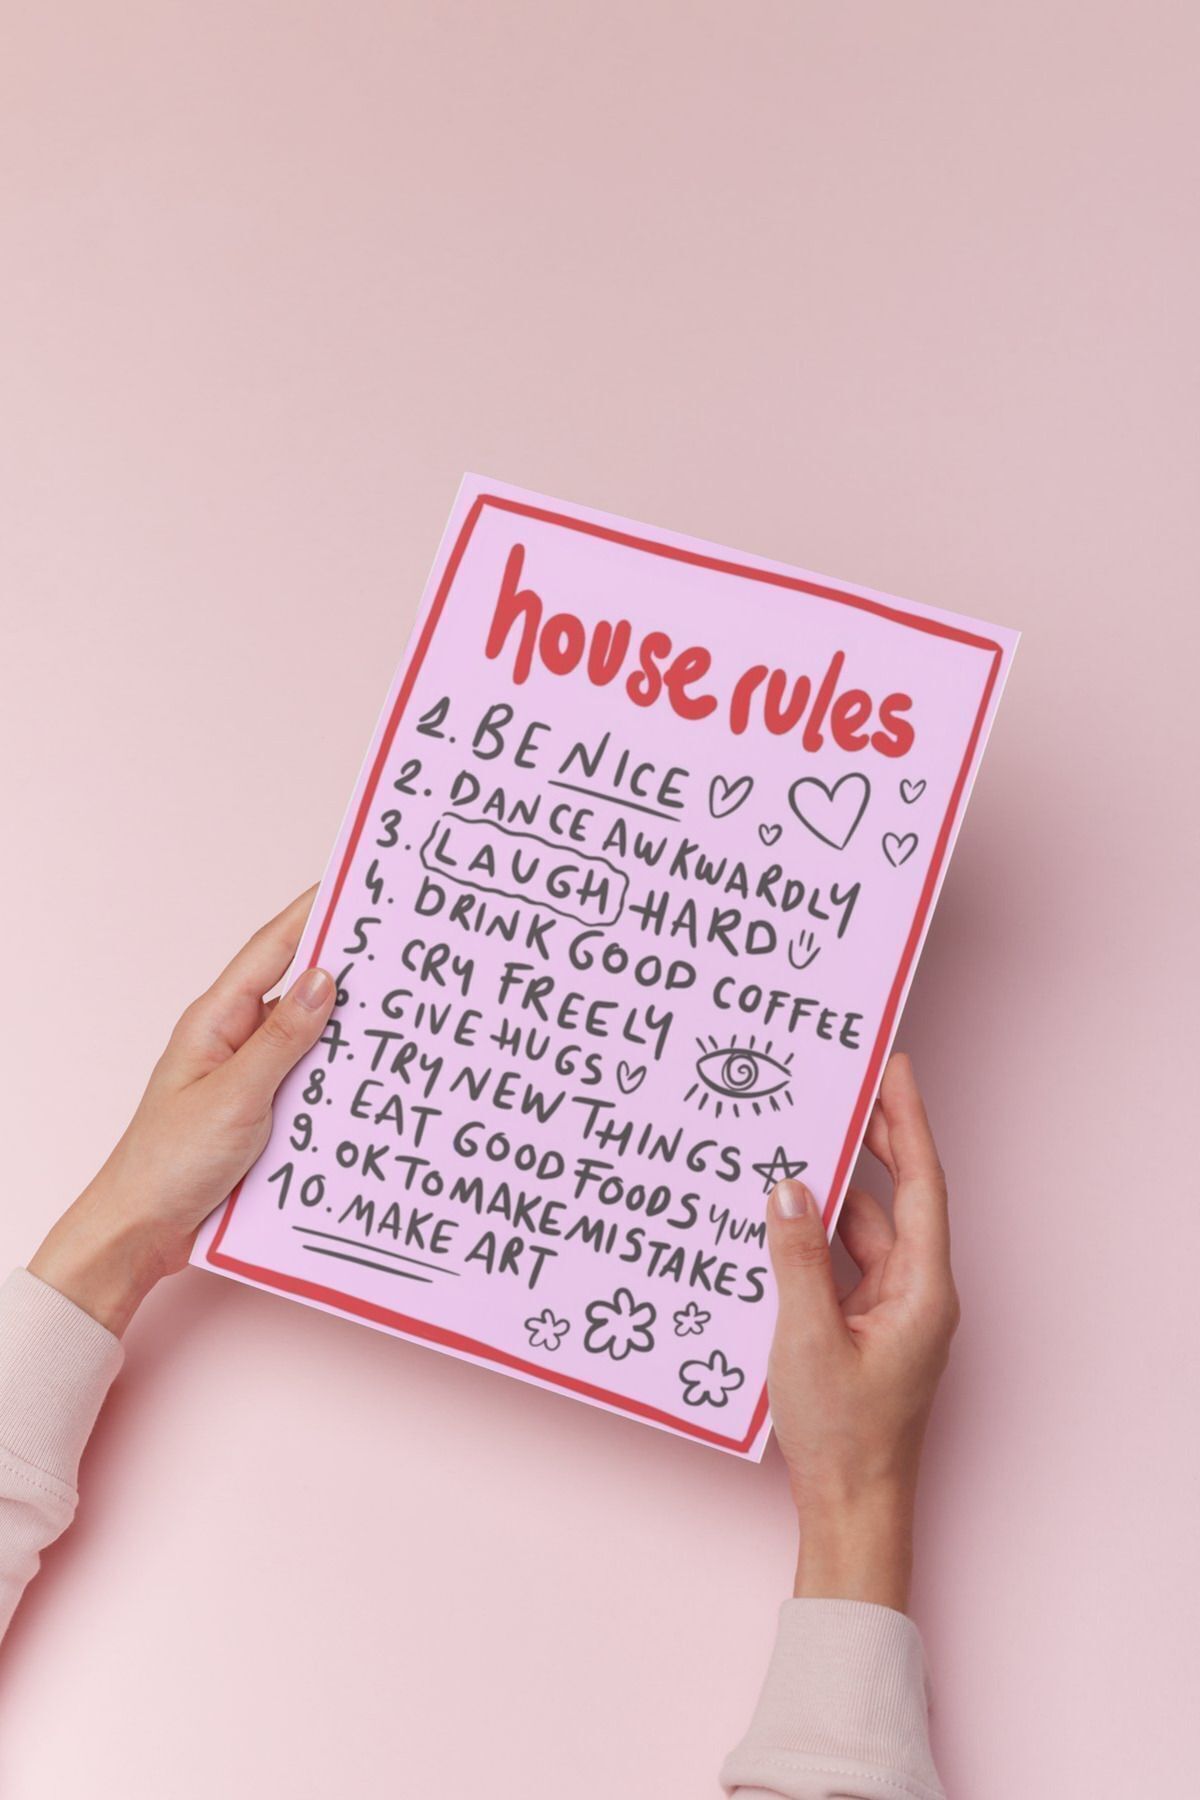 house rules
1. BE NICE
2. DANCE AWKWARDLY
3. LAUGH HARD
4. DRINK GOOD COFFEE
5. CRY FREELY
6. GIVE HUGS
7. TRY NEW THINGS
8. EAT GOOD FOODS YUM
9. OK TO MAKE MISTAKES
10. MAKE ART